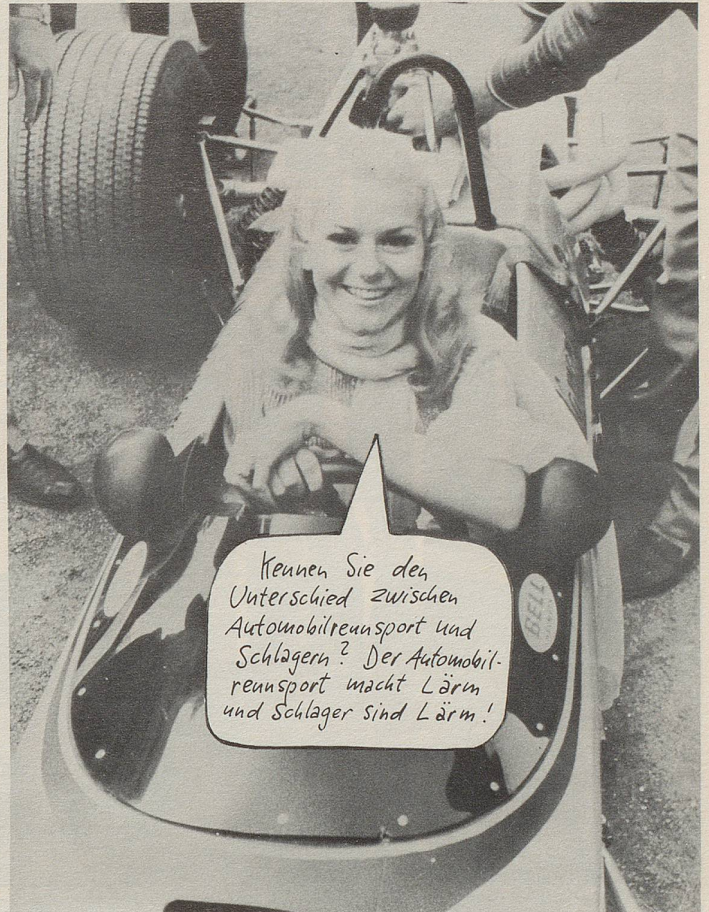 Kennen Sie den
Unterschied zwischen
Automobilrennsport und
Schlagern? Der Automobil-
rennsport macht Lärm
und Schlager sind Lärm!
BELL